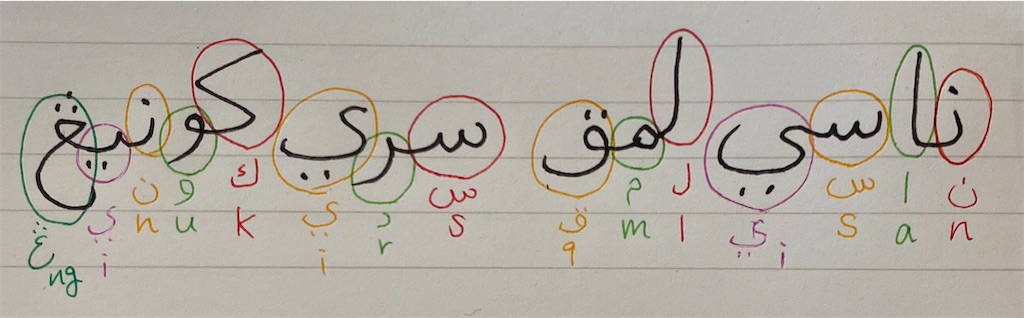 ناسي لمق سري كونيڠ
ن ا س ي ل م ق س ر ي ك و ن ي ڠ
n a s i l m q s r i k u n i ng